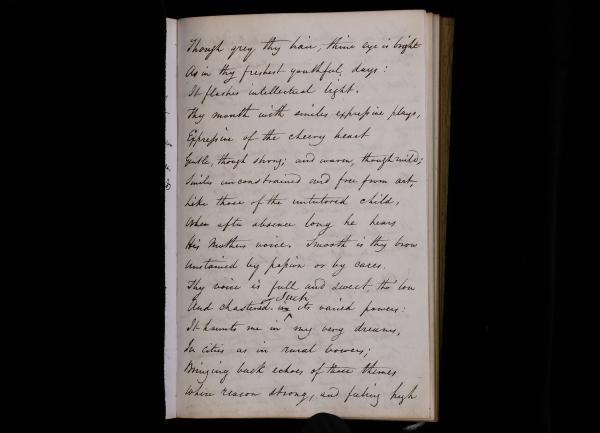 Though grey thy hair, thine eye is bright
As in thy freshest youthful days:
It flashes intellectual light.
Thy mouth with smiles expressive plays,
Expressive of the cheery heart
Gentle, though strong; and warm, though mild;
Smiles unconstrained and free from art,
Like those of the untutored child,
When after absence long he hears
His Mothers voice. Smooth is thy brow
Unstained by passion or by cares.
Thy voice is full and sweet, tho' low
Such
And chastened in its varied powers:
It haunts me in my very dreams,
In cities as in rural bowers;
Bringing back echoes of those themes
Where reason strong, and feeling high